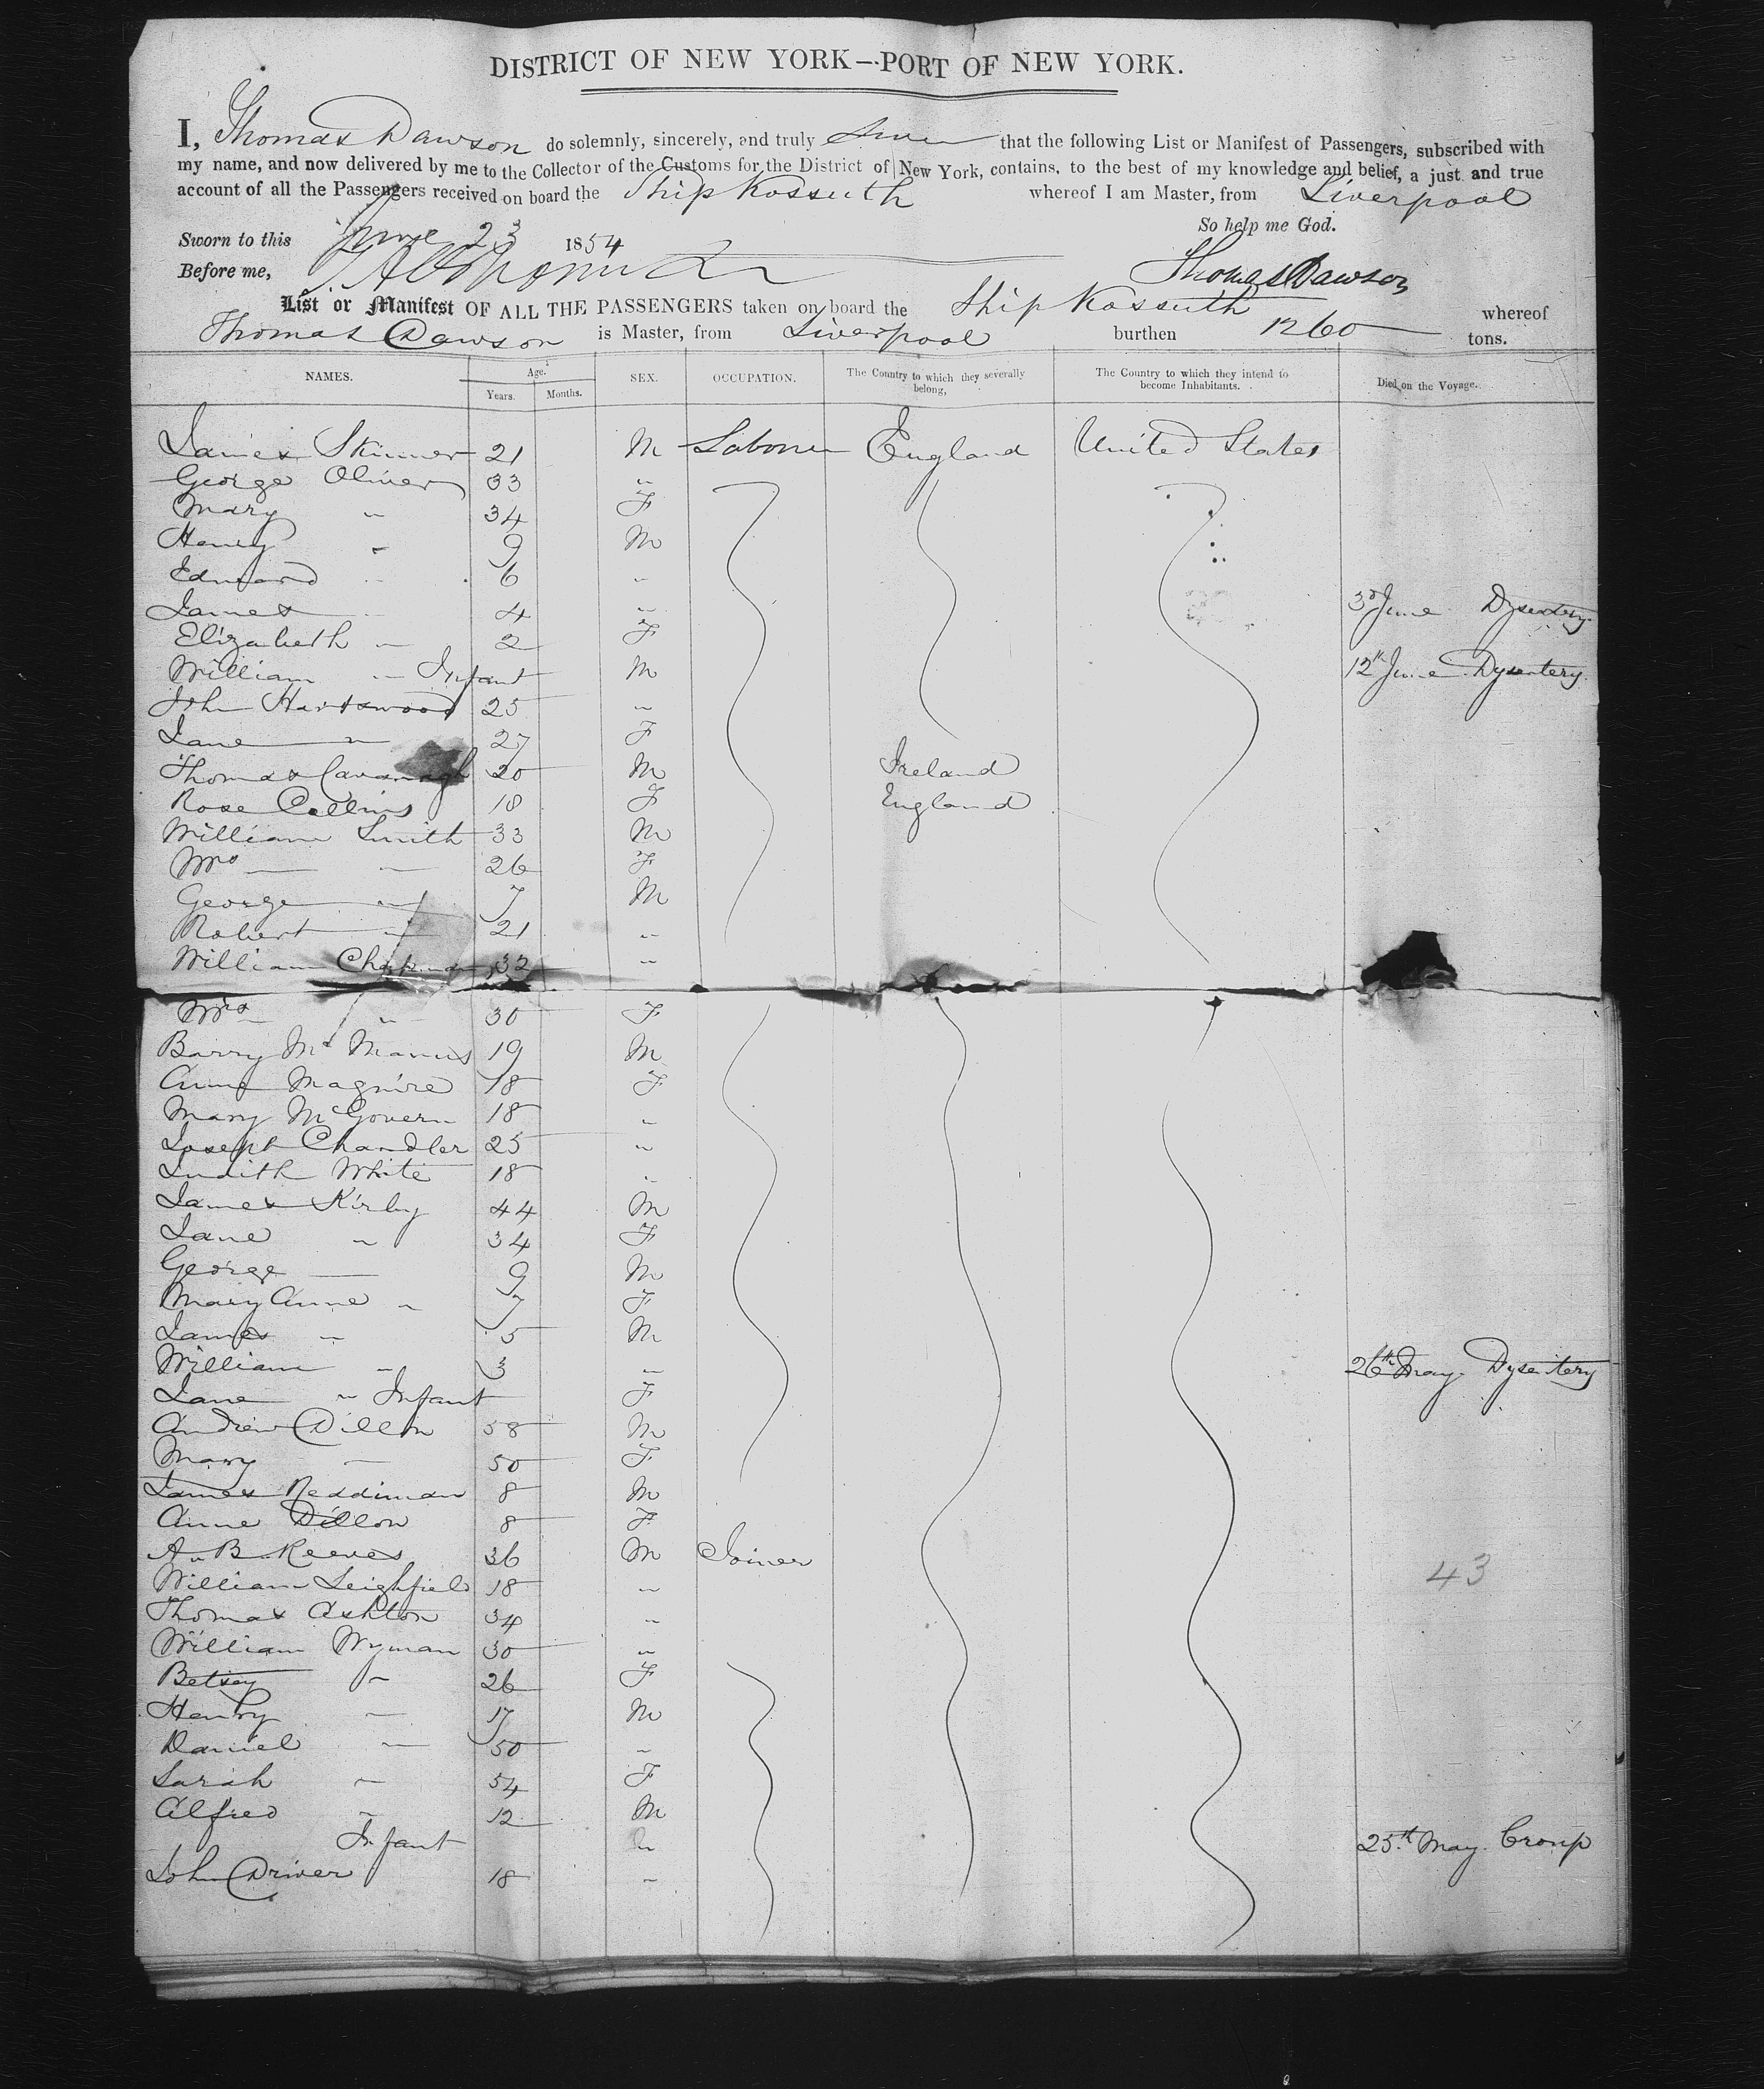 DISTRICT OF NEW YORK—PORT OF NEW YORK.
I, Thomas Dawson do solemnly, sincerely, and truly that the following List or Manifest of Passengers, subscribed with
my name, and now delivered by me to the Collector of the Customs for the District of New York, contains, to the best of my knowledge and belief, a just and true
account of all the Passengers received on board the Ship Kossuth whereof I am Master, from Liverpool
So help me God.
Sworn to this June 23 1854
Before me, Thomas Dawson
List or Manifest OF ALL THE PASSENGERS taken on board the Ship Kossuth whereof
Thomas Dawson is Master, from Liverpool burthen 1260 tons.
NAMES. Age. Years. Months. SEX. OCCUPATION. The Country to which they severally belong, The Country to which they intend to become Inhabitants. Died on the Voyage.
James Skinner 21 M Laborer England United States
George Oliver 33 "
Mary " 34 F
Henry " 9 M
Edward " 6 "
James 4 " 3d June Dysentery
Elizabeth " 2 F
William " Infant M 12th June Dysentery
John Hartswood 25 "
Jane " 27 F
Thomas Cavanagh 20 M Ireland
Rose Collins 18 F England
William Smith 33 M
Mrs — — 26 F
George " 7 M
Robert " 21 "
William Chapman 32 "
Mrs " 30 F
Barry McManus 19 M
Anne Maguire 18 F
Mary McGovern 18 "
Joseph Chandler 25 "
Judith White 18 "
James Kirby 44 M
Jane " 34 F
George — 9 M
Mary Anne " 7 F
James " 5 M
William " 3 " 26th May Dysentery
Jane " Infant F
Andrew Dillon 58 M
Mary — 50 F
James Reddiman 8 M
Anne Dillon 8 F
A. B. Reeves 36 M Joiner
William Leighfield 18 " 43
Thomas Ashton 34 "
William Wyman 30 "
Betsey " 26 F
Henry — 17 M
Daniel — 50 "
Sarah " 54 F
Alfred " 12 M
Infant " 25th May Croup
John Driver 18 "